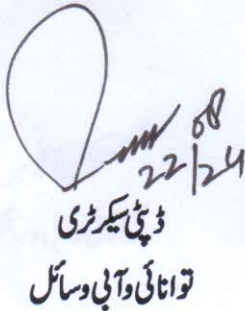 08
22/24
ڈپٹی سیکرٹری
توانائی وآبی وسائل